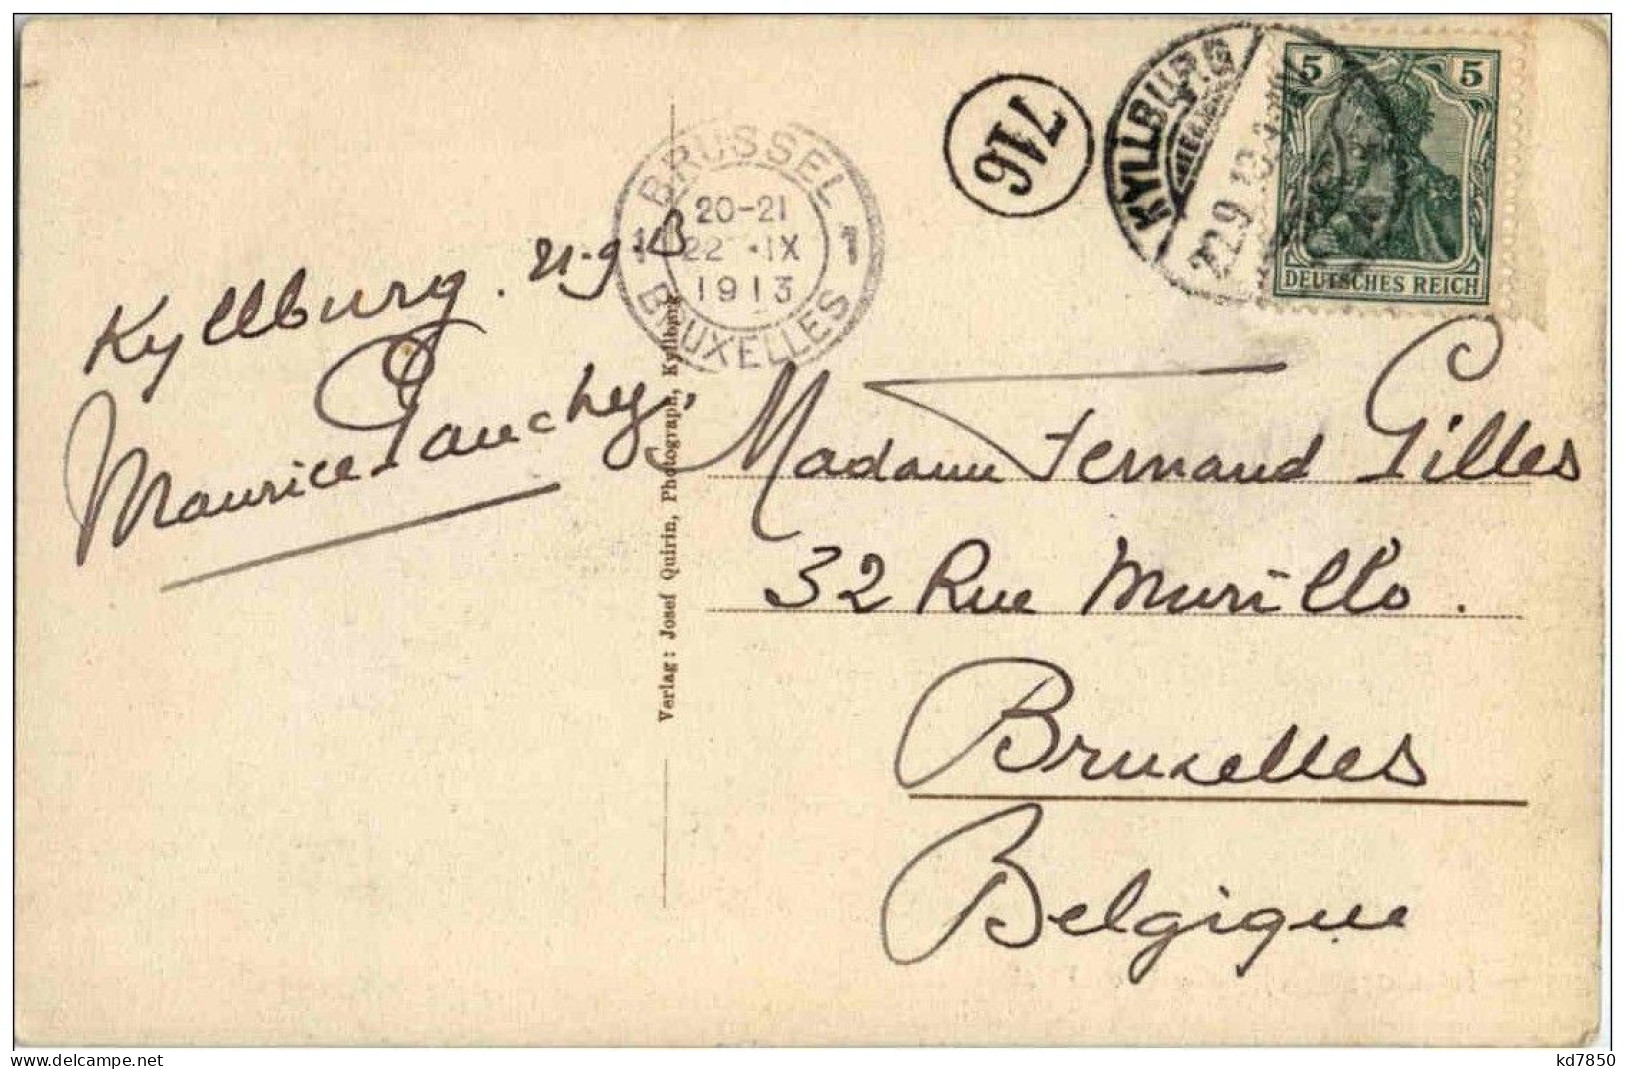 Kyllburg. 21-9-13
Maurice Pauchez,
Verlag: Josef Quirin, Photograph, Kyllburg
BRUSSEL
1 1
20-21
22 IX
1913
BRUXELLES
7146
KYLLBURG
22.9.13.
5 5
DEUTSCHES REICH
Madame Fernand Gilles
32 Rue Murillo.
Bruxelles
Belgique
www.delcampe.net
kd7850